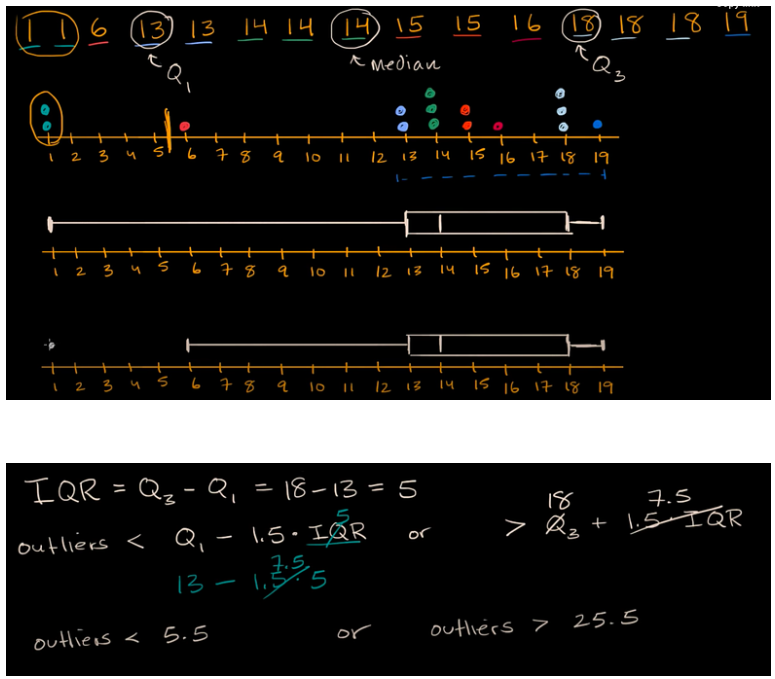 1 1 6 13 13 14 14 14 15 15 16 18 18 18 19
Q1 Median Q3
1 2 3 4 5 6 7 8 9 10 11 12 13 14 15 16 17 18 19
1 2 3 4 5 6 7 8 9 10 11 12 13 14 15 16 17 18 19
1 2 3 4 5 6 7 8 9 10 11 12 13 14 15 16 17 18 19
IQR = Q3 - Q1 = 18 - 13 = 5
5 18 7.5
outliers < Q1 - 1.5 · IQR or > Q3 + 1.5 · IQR
7.5
13 - 1.5 · 5
outliers < 5.5 or outliers > 25.5